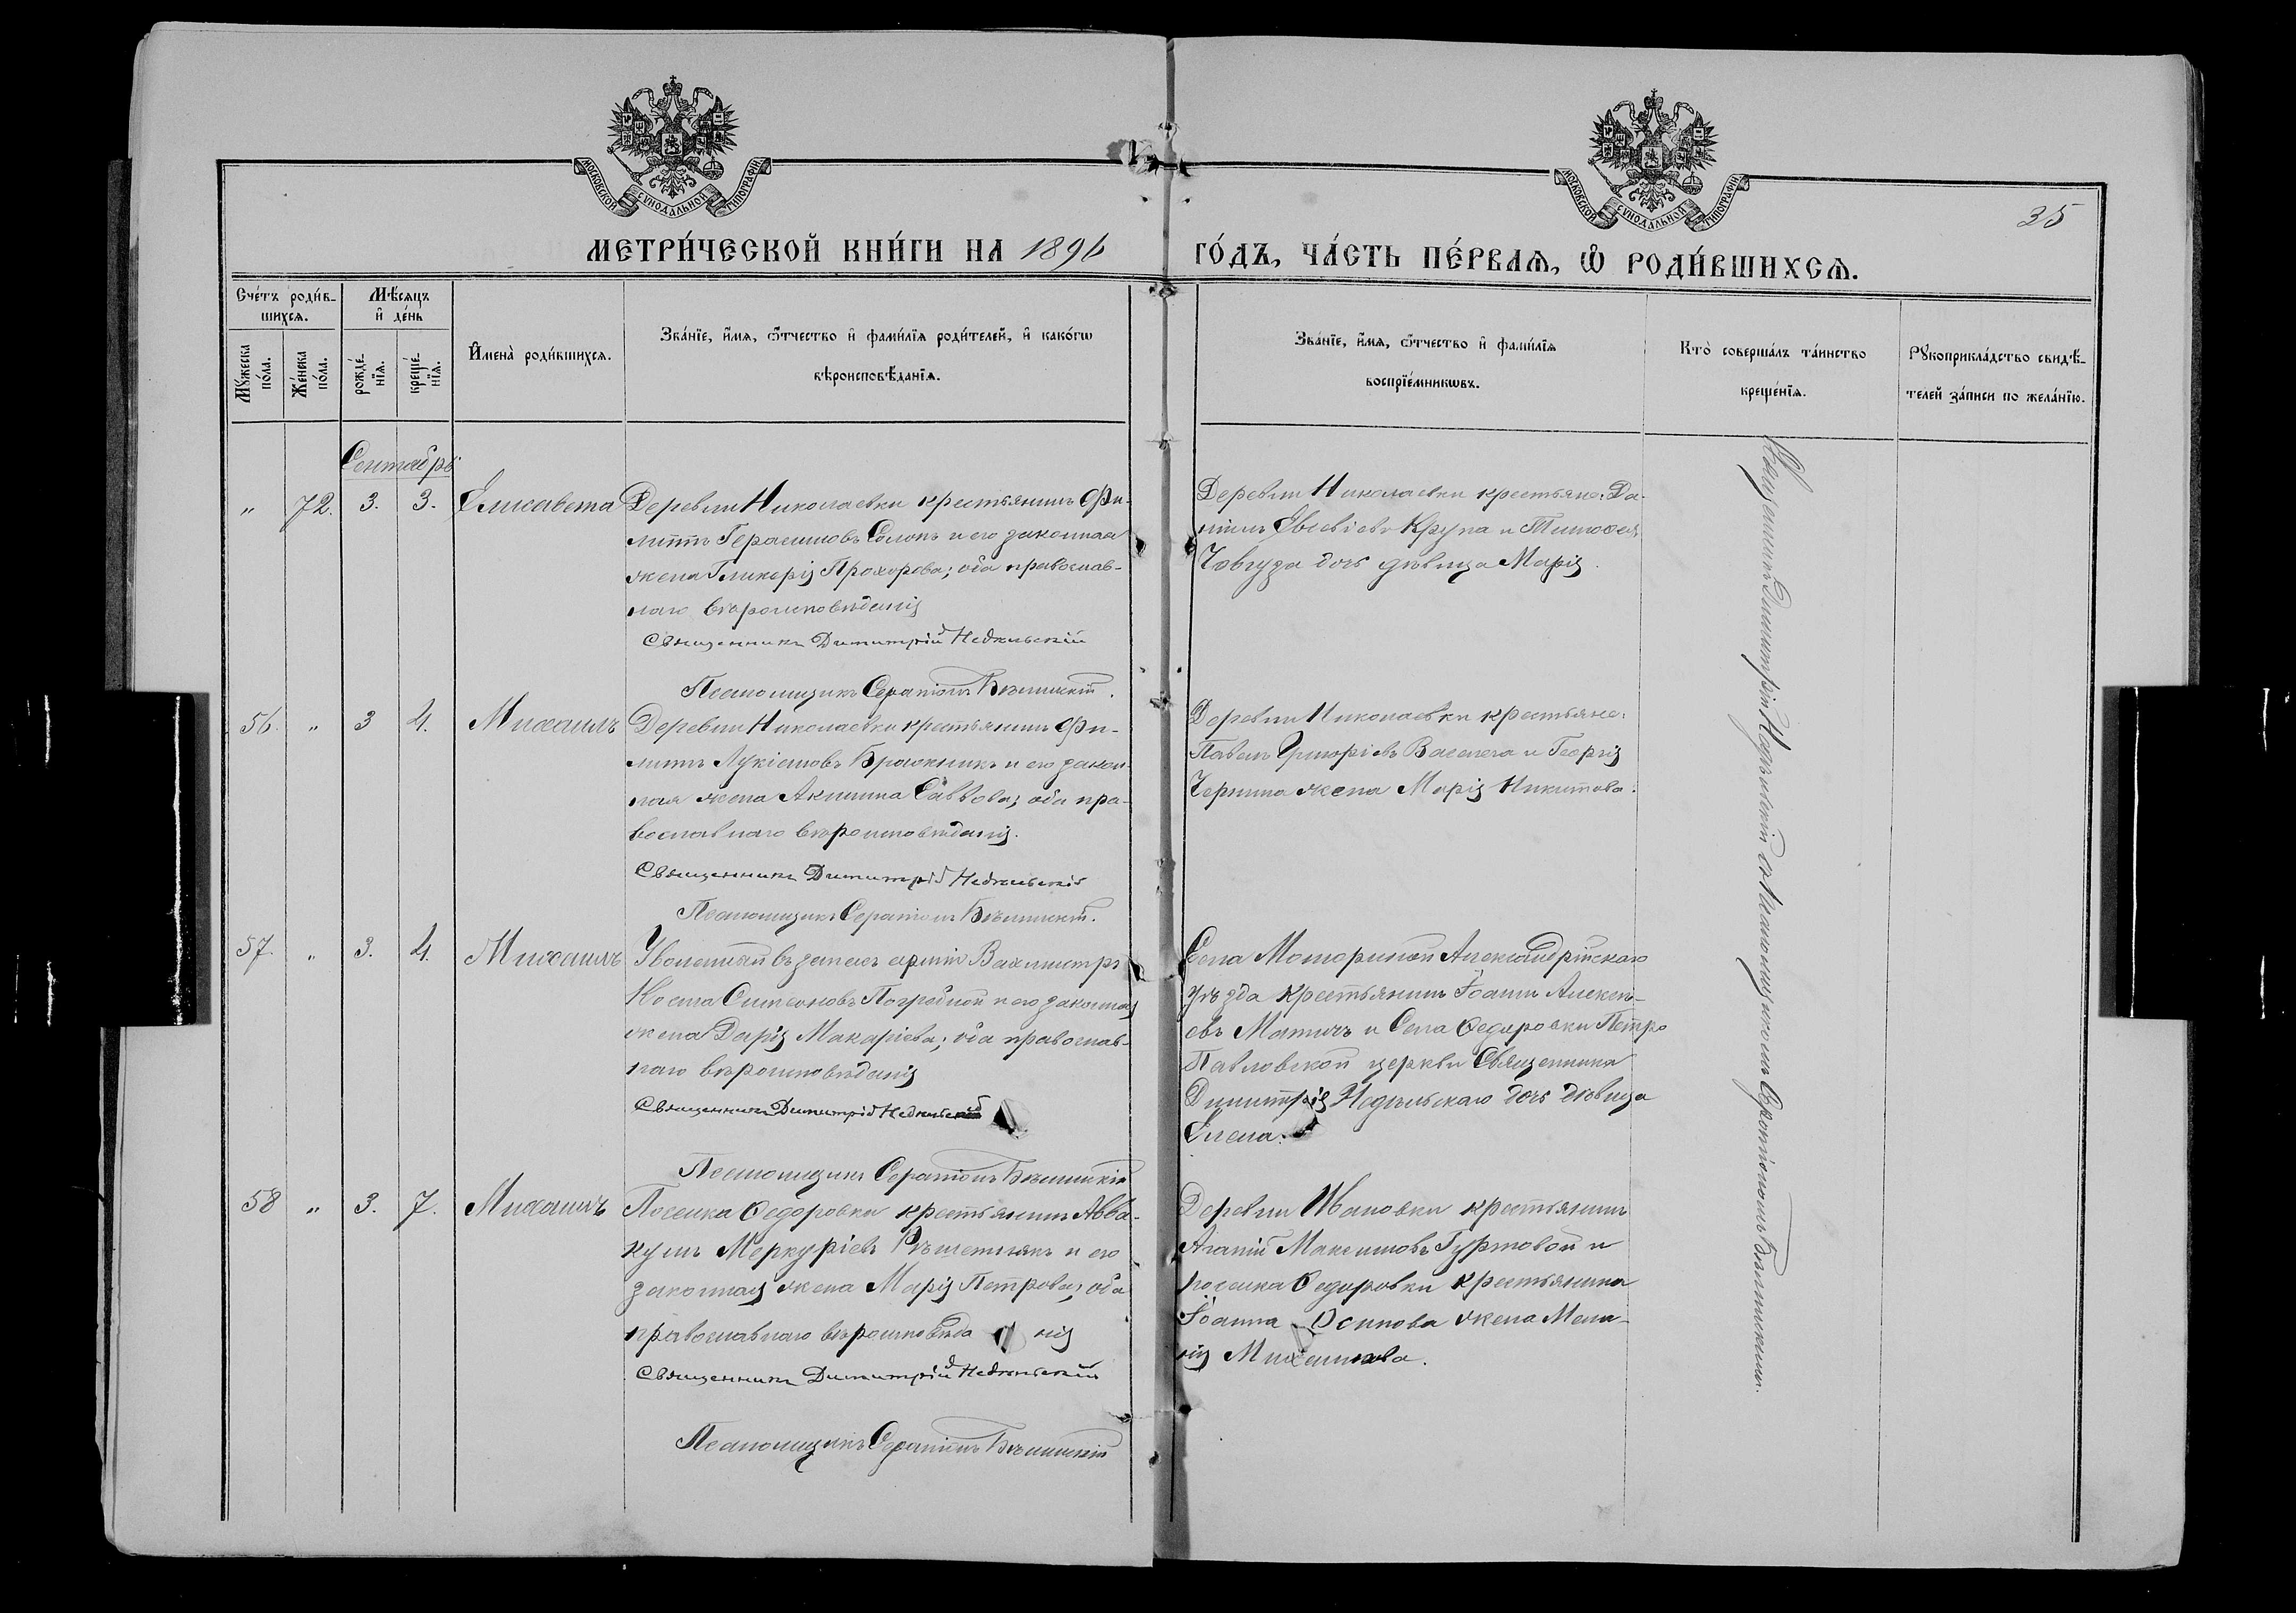 МОСКОВСКОЙ СѴНОДАЛЬНОЙ ТИПОГРАФІИ
МОСКОВСКОЙ СѴНОДАЛЬНОЙ ТИПОГРАФІИ
35
МЕТРИ́ЧЕСКОЙ КНИ́ГИ НА 1896
ГО́ДЪ, ЧА́СТЬ ПЕ́РВАѦ, Ѽ РОДИ́ВШИХСѦ.
Сче́тъ роди́в-
шихсѧ.
Мѣ́сѧцъ
и҆ де́нь
Мꙋ́жеска
по́ла.
Же́нска
по́ла.
рожде́-
нїѧ.
креще́-
нїѧ.
И҆мена̀ роди́вшихсѧ.
Зва́нїе, и҆́мѧ, ѻ҆́тчество и҆ фами́лїѧ роди́телей, и҆ како́гѡ
вѣроисповѣ́данїѧ.
Зва́нїе, и҆́мѧ, ѻ҆́тчество и҆ фами́лїѧ
воспрїе́мникѡвъ.
Кто̀ соверша́лъ та́инство
креще́нїѧ.
Рꙋкоприкла́дство свидѣ́-
телей за́писи по жела́нїю.
Сентябрь
„ 72. 3. 3. Елисавета Деревни Николаевки крестьянинъ Фи-
липпъ Герасимовъ Солопъ и его законная
жена Гликерія Прохорова; оба православ-
наго вѣроисповѣданія
Священникъ Димитрій Недѣльскій
Псаломщикъ Серапіонъ
Деревни Николаевки крестьяне: Да-
ніилъ Евсевіевъ Крупа и Тимофея
дочь дѣвица Марія.
56. „ 3 4. Михаилъ Деревни Николаевки крестьянинъ Фи-
липпъ Лукіановъ Бражникъ и его закон-
ная жена Акилина Саввова; оба пра-
вославнаго вѣроисповѣданія.
Священникъ Димитрій Недѣльскій
Псаломщикъ Серапіонъ
Деревни Николаевки крестьяне:
Павелъ Григоріевъ Василега и Георгія
Чернина жена Марія Никитова.
57. „ 3. 4. Михаилъ Уволенный въ запасъ арміи Вахмистръ
Косма Симеоновъ Погребной и его законная
жена Дарія Макаріева; оба православ-
наго вѣроисповѣданія
Священникъ Димитрій Недѣльскій
Псаломщикъ Серапіонъ
Села Моториной Александрійскаго
уѣзда крестьянинъ Іоаннъ Алексѣ-
евъ Матичъ и Села Ѳедоровки Петро
Павловской церкви Священника
Димитрія Недѣльскаго дочь дѣвица
Елена.
58 „ 3. 7. Михаилъ Поселка Ѳедоровки крестьянинъ Авва-
кумъ Меркуріевъ Рѣшетнякъ и его
законная жена Марія Петрова; оба
православнаго вѣроисповѣданія
Священникъ Димитрій Недѣльскій
Псаломщикъ Серапіонъ
Деревни Ивановки крестьянинъ
Агапій Максимовъ Гуртовой и
поселка Ѳедоровки крестьянина
Іоанна Осипова жена Мела-
нія Михаилова.
Священникъ Димитрій Недѣльскій съ Псаломщикомъ Серапіономъ